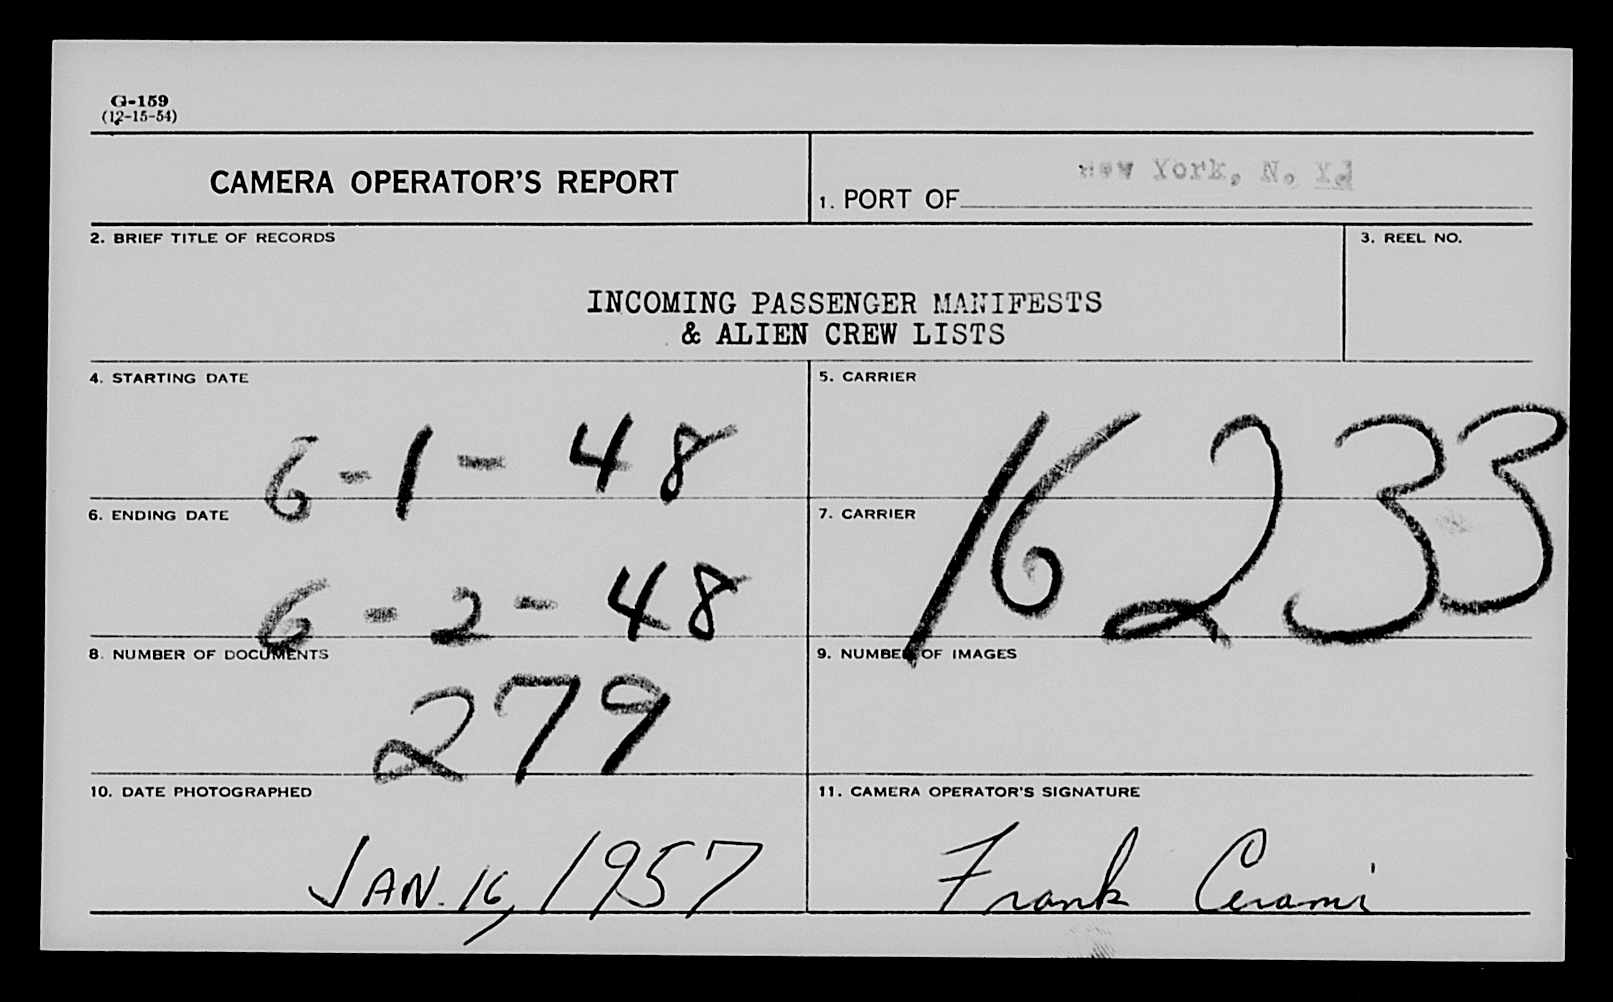 G-159
(12-15-54)
CAMERA OPERATOR'S REPORT
1. PORT OF New York, N. Y.
2. BRIEF TITLE OF RECORDS
INCOMING PASSENGER MANIFESTS
& ALIEN CREW LISTS
3. REEL NO.
4. STARTING DATE
6-1-48
5. CARRIER
16233
6. ENDING DATE
6-2-48
7. CARRIER
8. NUMBER OF DOCUMENTS
279
9. NUMBER OF IMAGES
10. DATE PHOTOGRAPHED
JAN. 16, 1957
11. CAMERA OPERATOR'S SIGNATURE
Frank Cerami